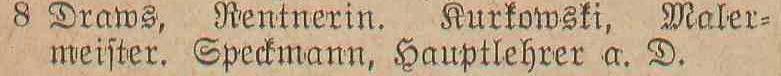 8 Draws, Rentnerin. Kurkowski, Maler-
meister. Speckmann, Hauptlehrer a. D.